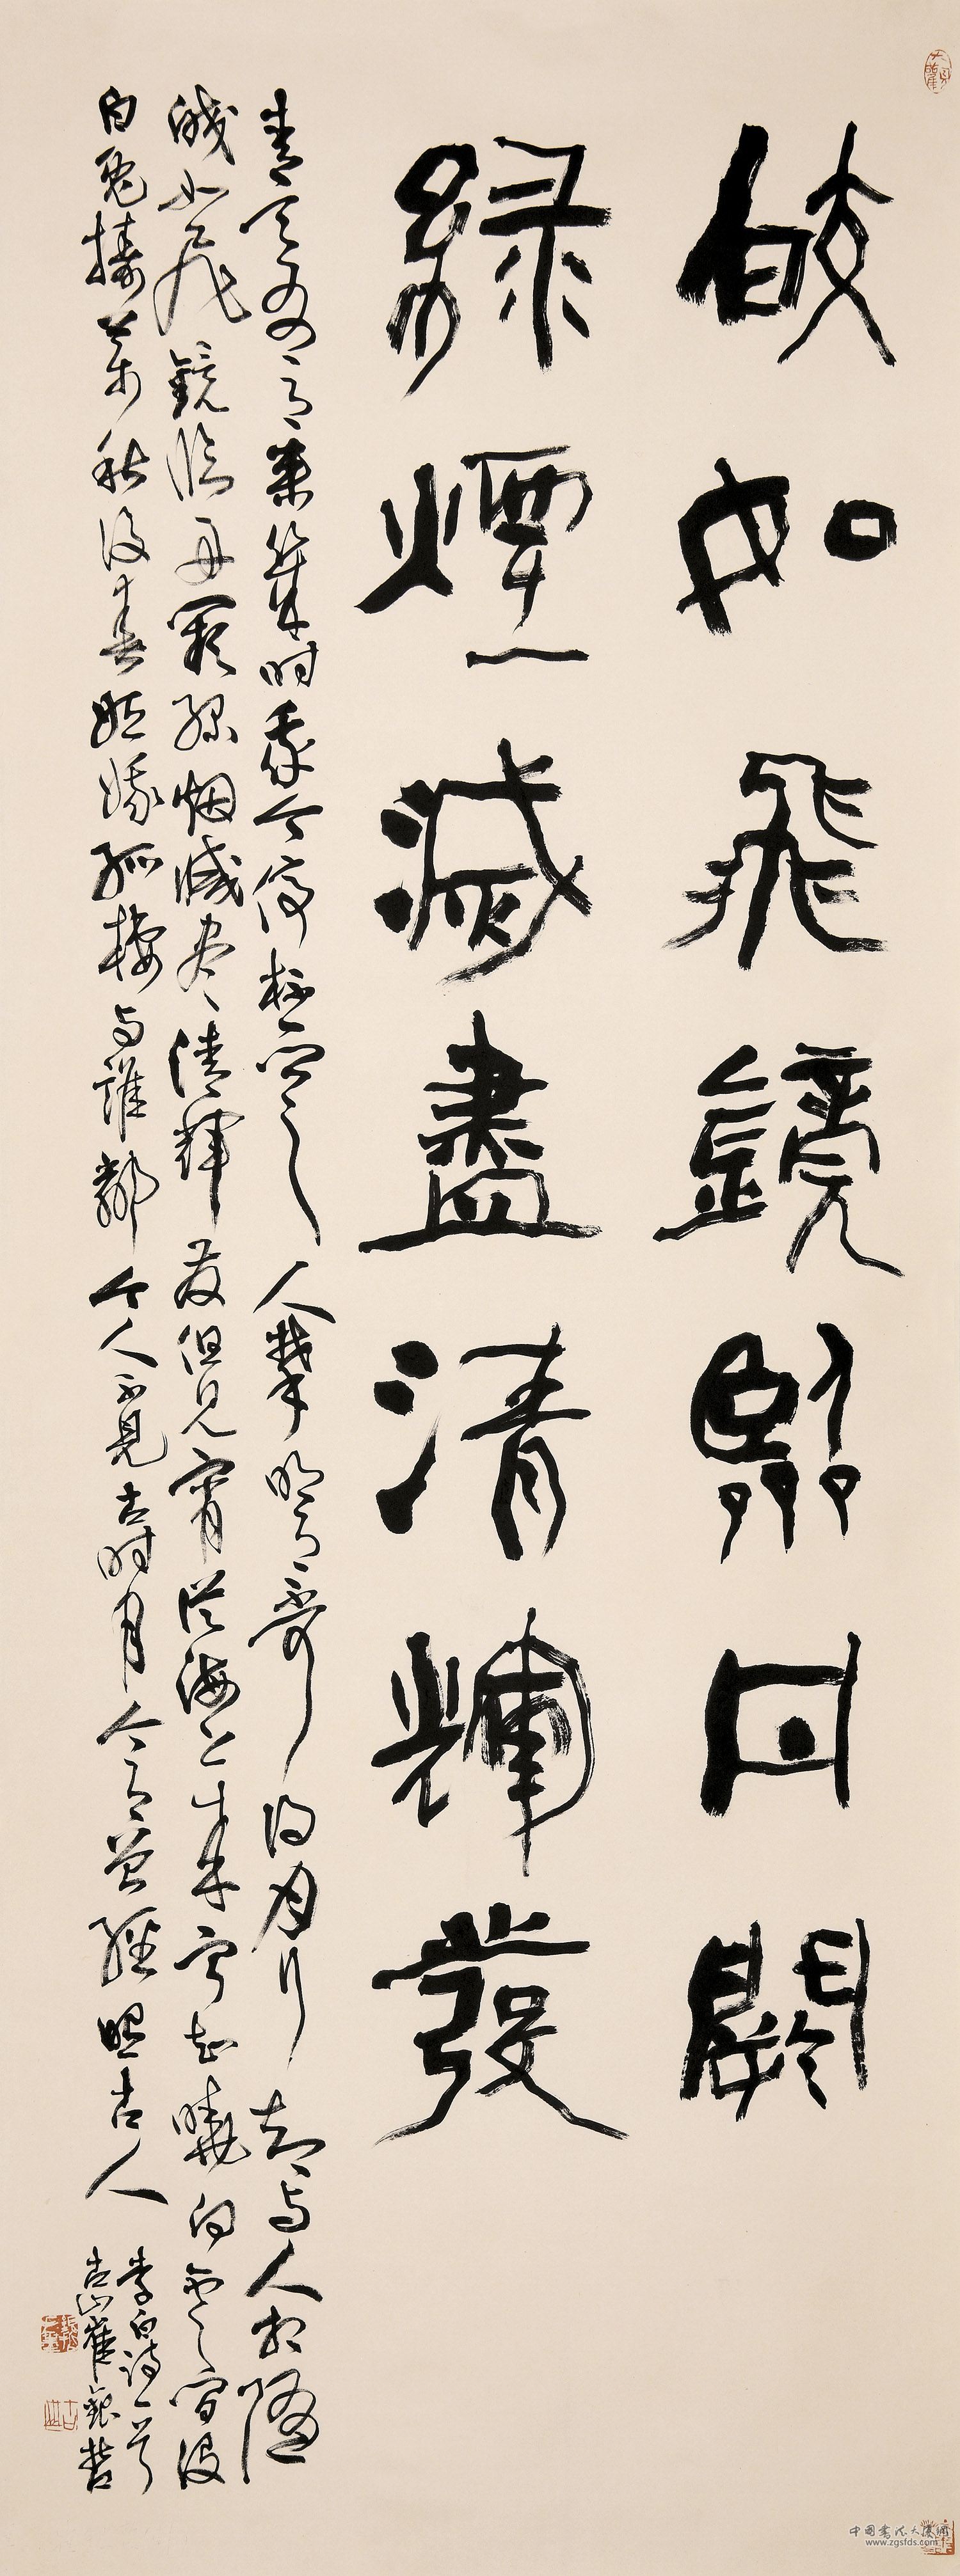 皎如飛鏡臨丹闕
綠煙滅盡清輝發
青天有月来幾时我今停杯一問之人攀明月不可得月行却与人相随
皎如飛鏡臨丹闕綠烟滅尽清輝发但見宵從海上来寧知曉向雲間没
白兔搗药秋復春姮娥孤棲与誰鄰今人不見古时月今月曾經照古人
李白詩一首
古山崔銀哲
www.zgsfds.com